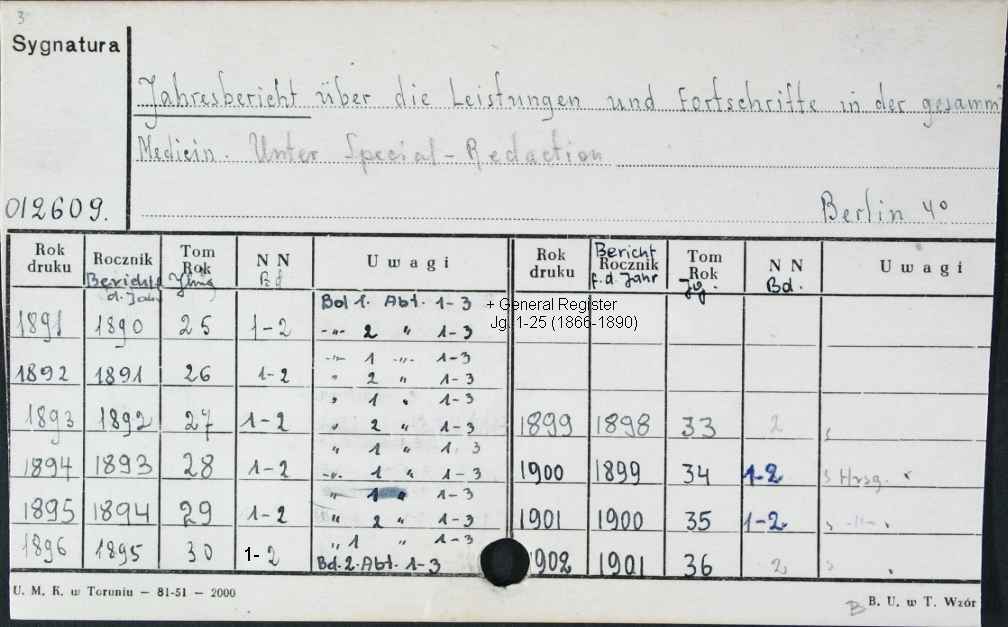 3
Sygnatura
Jahresbericht über die Leistungen und Fortschritte in der gesamm
Medicin. Unter Special-Redaction
012609.
Berlin 4°
Rok druku Rocznik Tom Rok N N U w a g i Rok druku Bericht Rocznik f. d. Jahr Tom Rok Jg. N N Bd. U w a g i
Bericht d. Jahr Jhrg Bd
Bd 1. Abt. 1-3 + General Register
1891 1890 25 1-2 -"- 2 " 1-3 Jg. 1-25 (1866-1890)
-"- 1 -"- 1-3
1892 1891 26 1-2 " 2 " 1-3
" 1 " 1-3
1893 1892 27 1-2 " 2 " 1-3 1899 1898 33 2
" 1 " 1, 3
1894 1893 28 1-2 -"- 1 " 1-3 1900 1899 34 1-2 Hrsg.
" 1 " 1-3
1895 1894 29 1-2 " 2 " 1-3 1901 1900 35 1-2 -"-
" 1 " 1-3
1896 1895 30 1-2 Bd. 2. Abt. 1-3 1902 1901 36 2
U. M. K. w Toruniu — 81-51 — 2000
B B. U. w T. Wzór